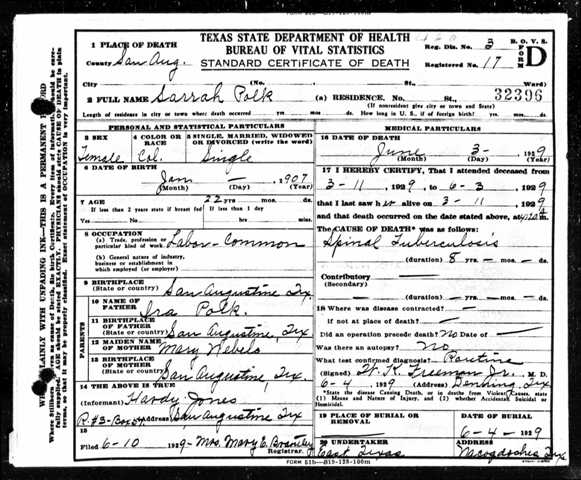 TEXAS STATE DEPARTMENT OF HEALTH
BUREAU OF VITAL STATISTICS
STANDARD CERTIFICATE OF DEATH
B. O. V. S.
FORM D
Reg. Dis. No.
Registered No. 17
1 PLACE OF DEATH
County San Aug.
City (No. St. Ward)
32396
2 FULL NAME Sarrah Polk (a) RESIDENCE. No. St.
(If nonresident give city or town and State)
Length of residence in city or town where death occurred yrs. mos. ds. How long in U. S., if of foreign birth? yrs. mos. ds.
PERSONAL AND STATISTICAL PARTICULARS
3 SEX
Female
4 COLOR OR RACE
Col.
5 SINGLE, MARRIED, WIDOWED or DIVORCED (write the word)
Single
6 DATE OF BIRTH
Jan — 1907
(Month) (Day) (Year)
7 AGE 22 yrs. mos. ds.
If less than 2 years state if breast fed If less than 1 day
Yes No hrs. min.
8 OCCUPATION
(a) Trade, profession or particular kind of work Labor-Common
(b) General nature of industry, business or establishment in which employed (or employer)
9 BIRTHPLACE
(State or country) San Augustine Tx.
PARENTS
10 NAME OF FATHER Ira Polk.
11 BIRTHPLACE OF FATHER
(State or country) San Augustine, Tex
12 MAIDEN NAME OF MOTHER Mary
13 BIRTHPLACE OF MOTHER
(State or country) San Augustine, Tex.
14 THE ABOVE IS TRUE
(Informant) Hardy Jones
R #3-Box San Augustine Tex
15
Filed 6-10 1929 - Mrs. Mary E. Brantley
Registrar.
MEDICAL PARTICULARS
16 DATE OF DEATH
June 3- 1929
(Month) (Day) (Year)
17 I HEREBY CERTIFY, That I attended deceased
from 3-11, 1929, to 6-3, 1929
that I last saw her alive on 3-11 1929
and that death occurred on the date stated above, at
The CAUSE OF DEATH* was as follows:
Spinal Tuberculosis
(duration) 8 yrs. — mos. — ds.
Contributory
(Secondary)
(duration) yrs. mos. ds.
18 Where was disease contracted,
if not at place of death?
Did an operation precede death? No Date of —
Was there an autopsy? No
What test confirmed diagnosis? Routine
(Signed) W. K. Freeman Jr., M. D.
6-4, 1929 (Address) Denning, Tex
*State the Disease Causing Death, or in deaths from Violent Causes, state (1) Means and Nature of Injury, and (2) whether Accidental, Suicidal or Homicidal.
19 PLACE OF BURIAL OR REMOVAL
DATE
6-4-1929
20 UNDERTAKER
East Texas
ADDRESS
Nacogdoches Tex
FORM 51b—B19-128-100m